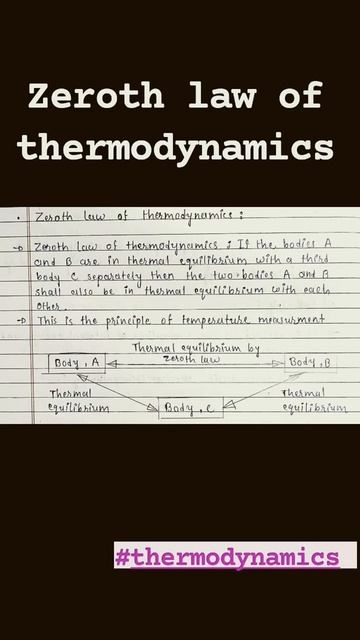 Zeroth law of
thermodynamics
• Zeroth law of thermodynamics :
→ Zeroth Law of thermodynamics : If the bodies A
and B are in thermal equilibrium with a third
body C separately then the two bodies A and B
shall also be in thermal equilibrium with each
other.
→ This is the principle of temperature measurment
Thermal equilibrium by
zeroth law
Body, A
Body, B
Thermal
equilibrium
Thermal
equilibrium
Body, C
#thermodynamics